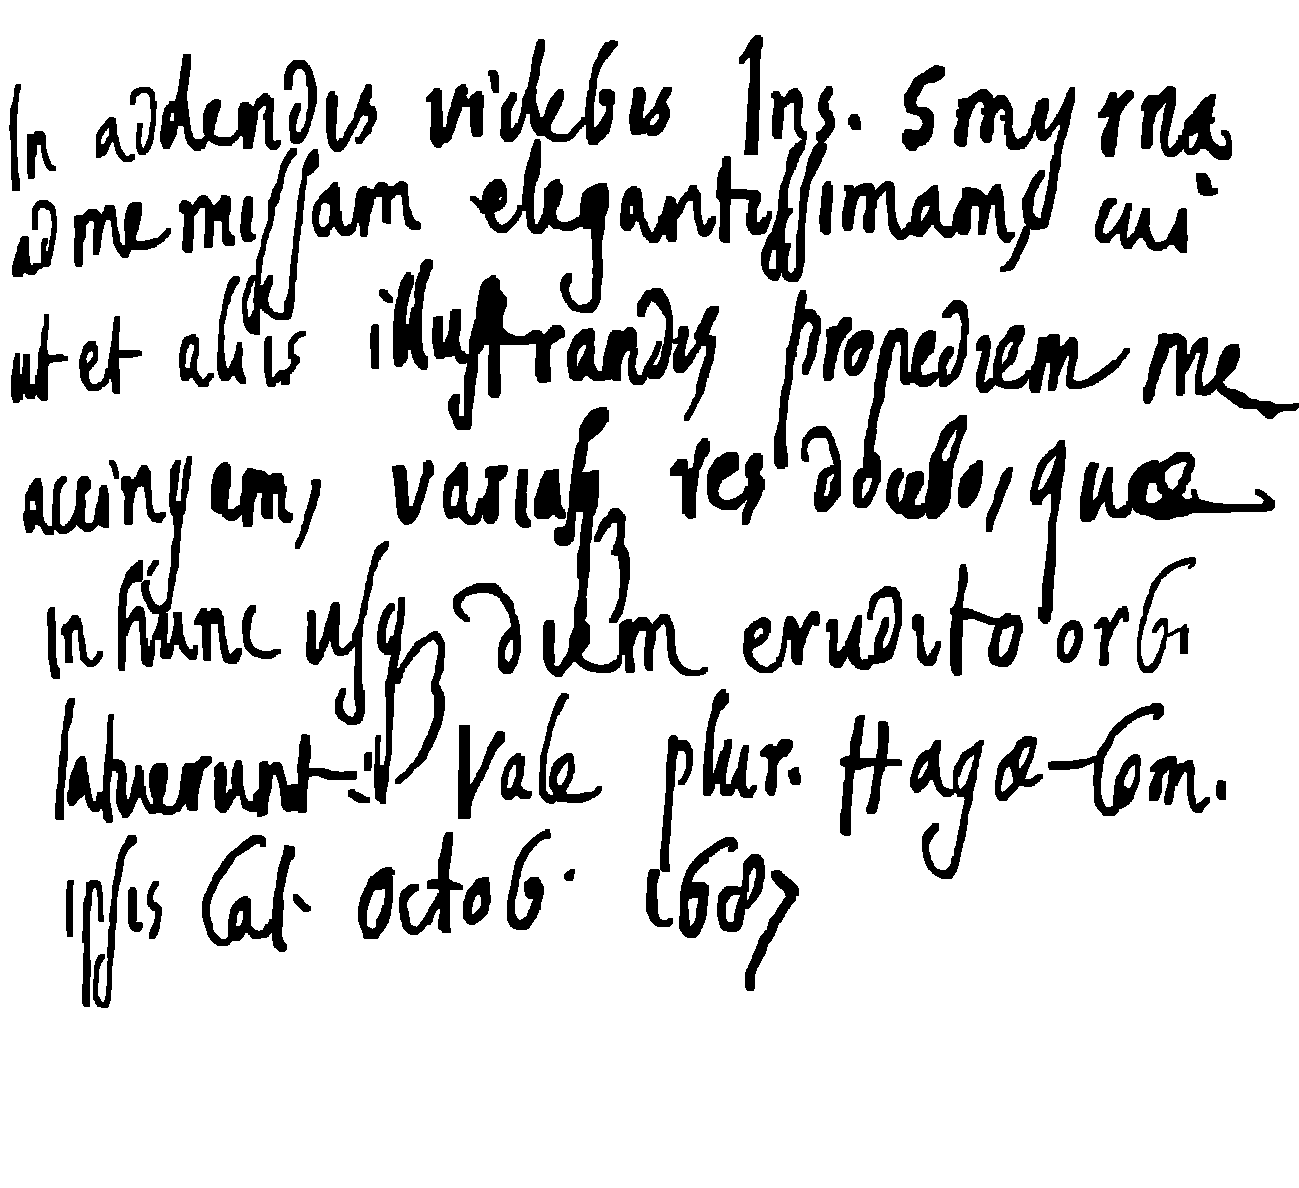 In addendis videbis Ins. Smyrna
ad me missam elegantissimam, cui
ut et aliis illustrandis propediem me
accingem, variasq3 res docebo, quæ
in hunc usq3 diem erudito orbi
latuerunt: Vale plur. Hagæ-Com.
ipsis Cal. Octob. 1687